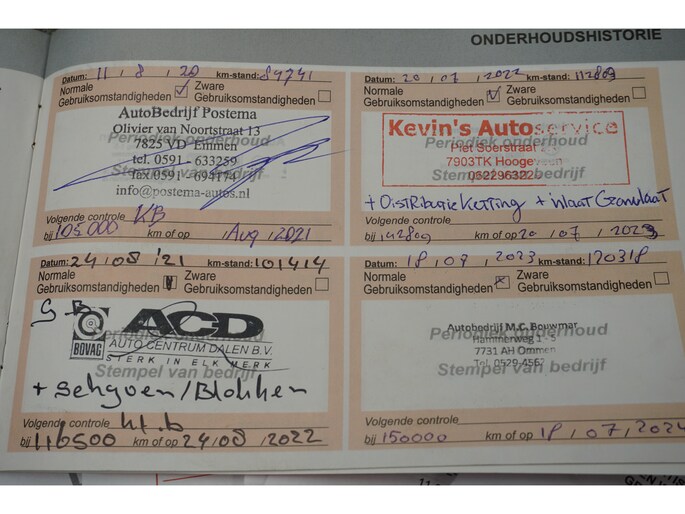 ONDERHOUDSHISTORIE
Datum: 11 / 8 / 20 km-stand: 89741
Normale Gebruiksomstandigheden
Zware Gebruiksomstandigheden
AutoBedrijf Postema
Olivier van Noortstraat 13
7825 VD Emmen
tel. 0591 - 633259
fax.0591 - 694174
info@postema-autos.nl
Periodiek onderhoud
Stempel van bedrijf
Volgende controle KB
bij 105.000 km of op Aug / 2021
Datum: 20 / 07 / 2022 km-stand: 112809
Normale Gebruiksomstandigheden
Zware Gebruiksomstandigheden
Kevin's Autoservice
Piet Soerstraat
7903TK Hoogeveen
Periodiek onderhoud
Stempel van bedrijf
+ Distributie Ketting + inlaat Granulaat
Volgende controle
bij 142809 km of op 20 / 07 / 2023
Datum: 24/08 '21 km-stand: 101414
Normale Gebruiksomstandigheden
Zware Gebruiksomstandigheden
ACD
BOVAG
AUTO CENTRUM DALEN B.V.
STERK IN ELK MERK
Periodiek onderhoud
Stempel van bedrijf
+ schyven/Blokken
Volgende controle
bij 116500 km of op 24/08 / 2022
Datum: 18 / 07 / 2023 km-stand: 120318
Normale Gebruiksomstandigheden
Zware Gebruiksomstandigheden
Autobedrijf M.C. Bouwmar
Hammerweg 1 - 5
7731 AH Ommen
Tel. 0529-4562
Periodiek onderhoud
Stempel van bedrijf
Volgende controle
bij 150000 km of op 18 / 07 / 2024